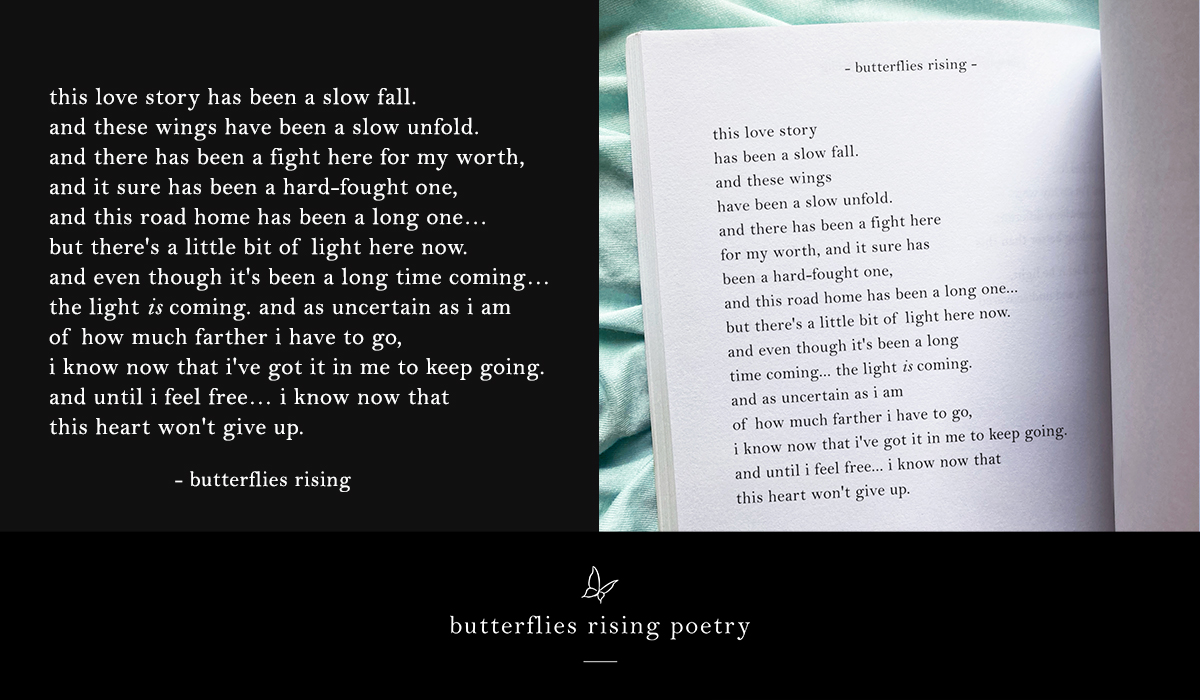 this love story has been a slow fall.
and these wings have been a slow unfold.
and there has been a fight here for my worth,
and it sure has been a hard-fought one,
and this road home has been a long one...
but there's a little bit of light here now.
and even though it's been a long time coming...
the light is coming. and as uncertain as i am
of how much farther i have to go,
i know now that i've got it in me to keep going.
and until i feel free... i know now that
this heart won't give up.
- butterflies rising
- butterflies rising -
this love story
has been a slow fall.
and these wings
have been a slow unfold.
and there has been a fight here
for my worth, and it sure has
been a hard-fought one,
and this road home has been a long one...
but there's a little bit of light here now.
and even though it's been a long
time coming... the light is coming.
and as uncertain as i am
of how much farther i have to go,
i know now that i've got it in me to keep going.
and until i feel free... i know now that
this heart won't give up.
butterflies rising poetry